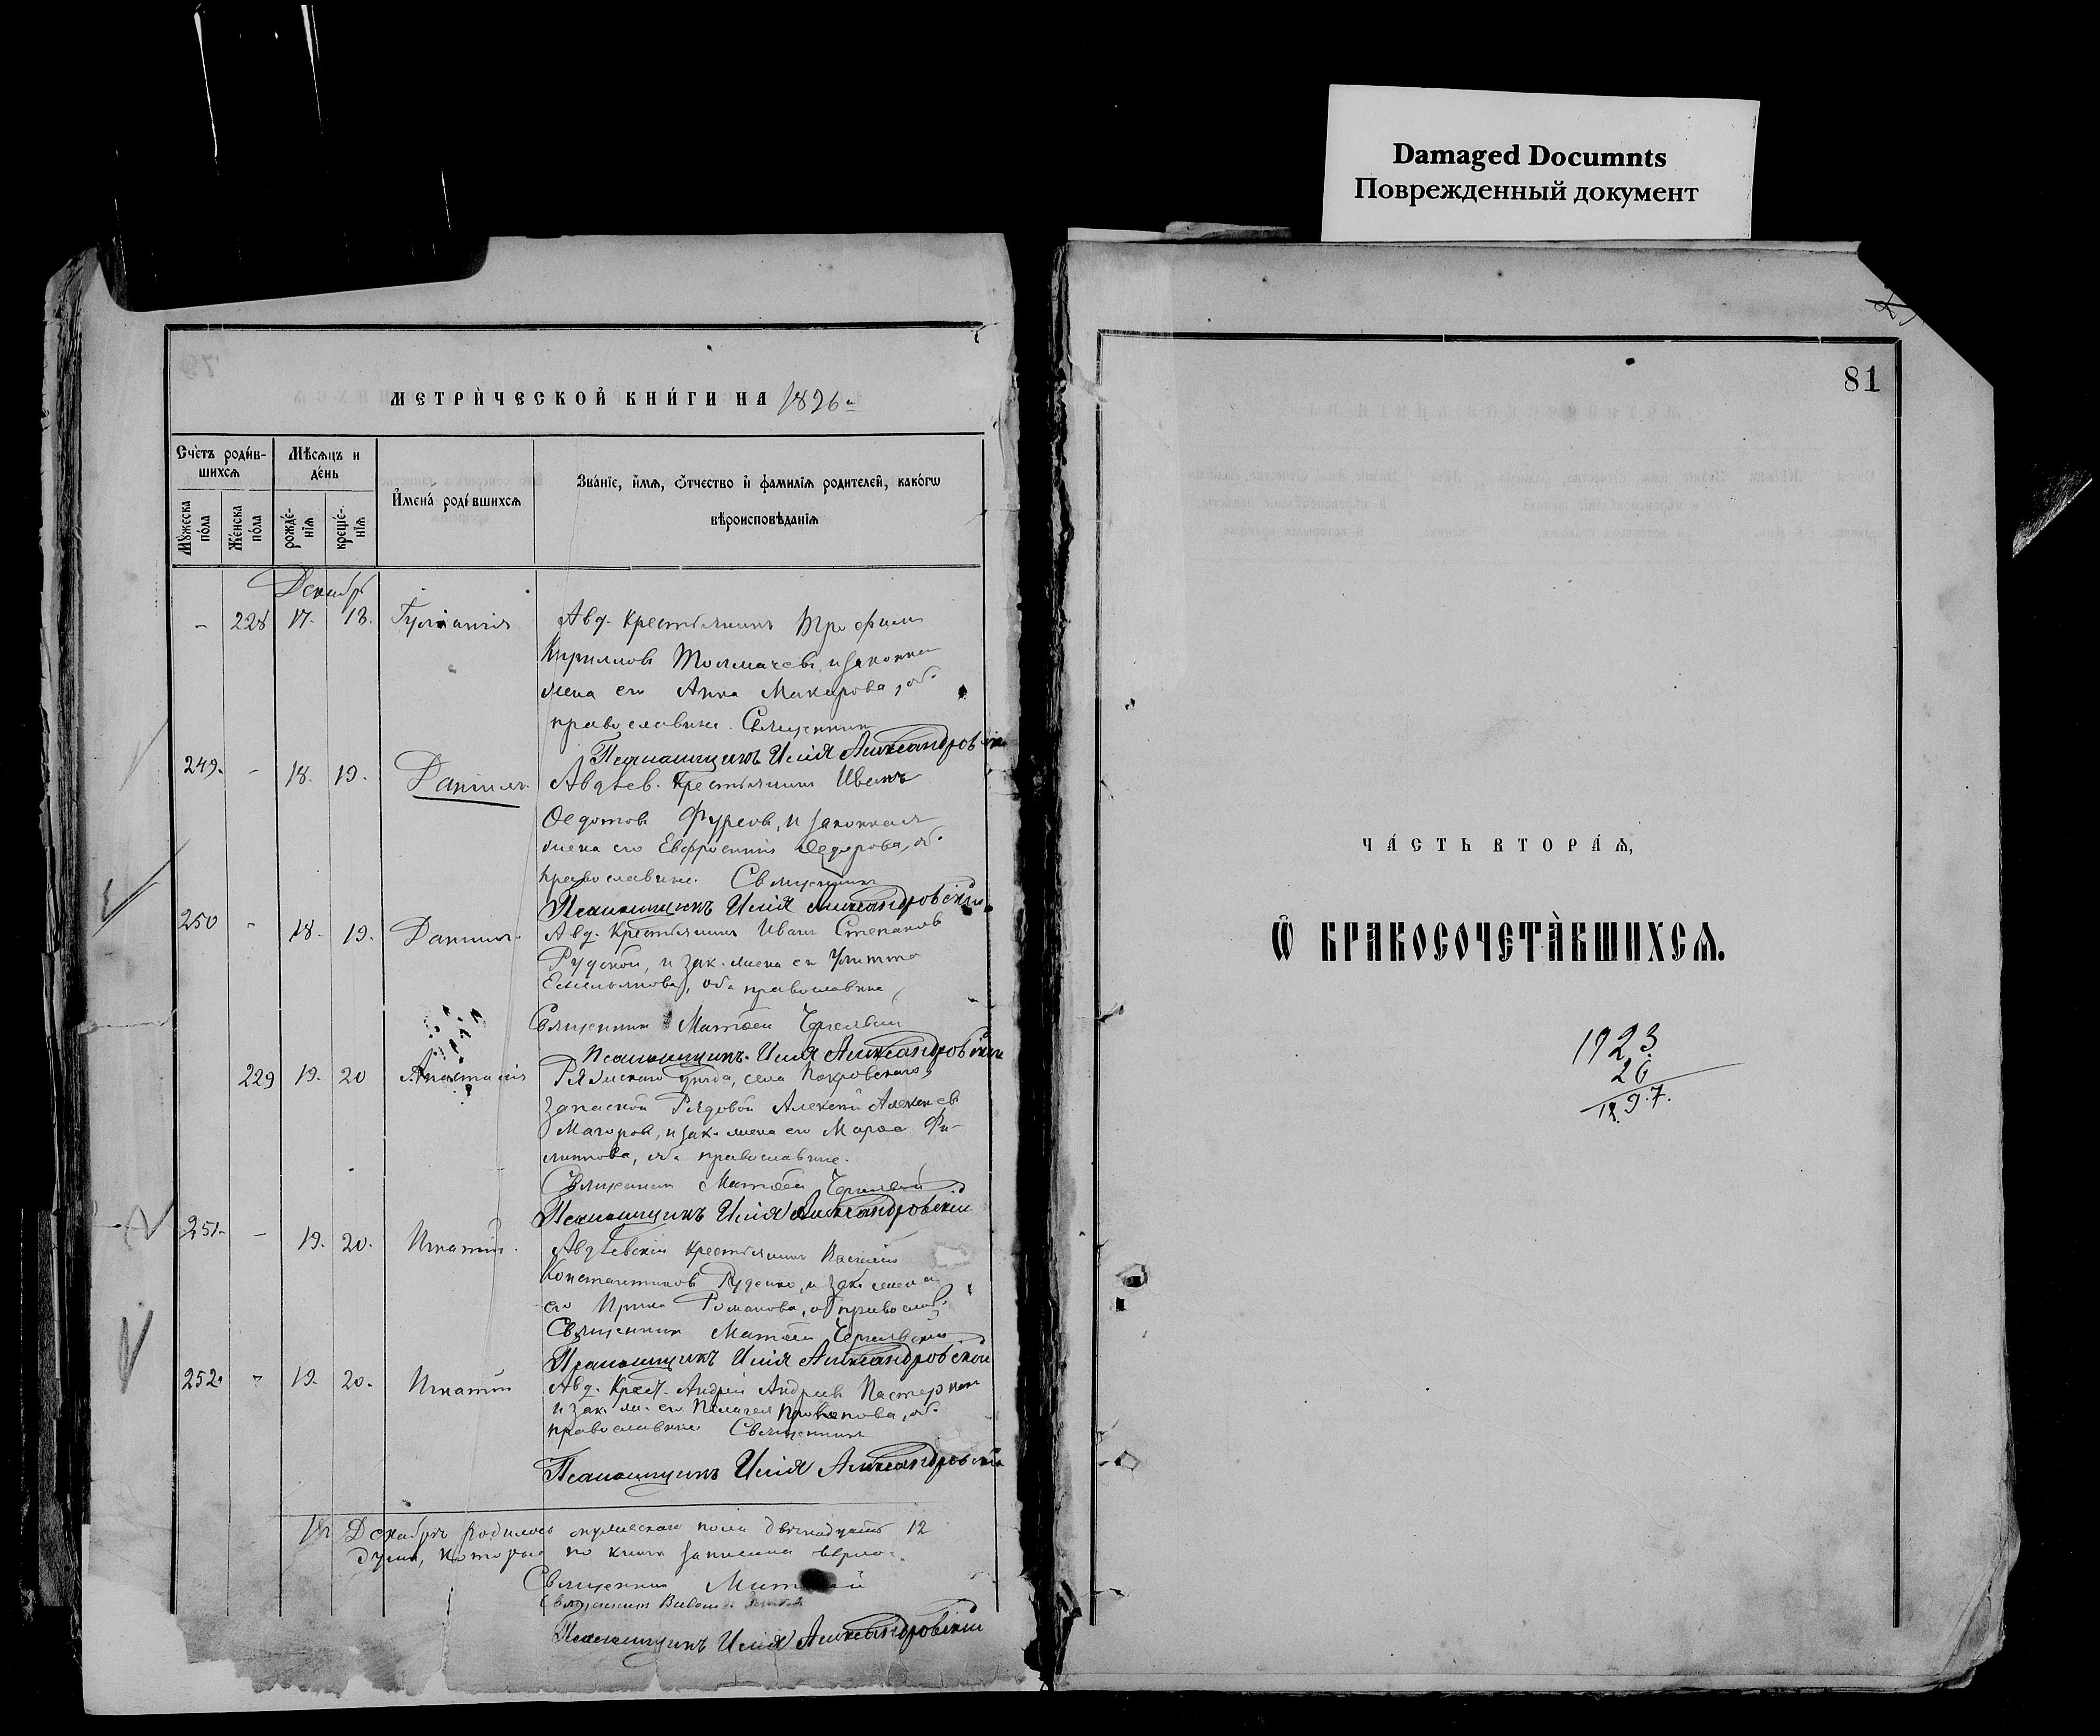 Damaged Documnts
Поврежденный документ
МЕТРИ́ЧЕСКОЙ КНИ́ГИ НА 1896 г.
Счетъ роди́в-
шихсѧ
Мѣсѧцъ и
де́нь
Мꙋ́жеска
по́ла
Же́нска
по́ла
рожде́-
нїѧ
креще́-
нїѧ
И҆мена́ роди́вшихсѧ
Зва́нїе, и҆́мѧ, ѻ҆́тчество и҆ фами́лїѧ роди́телей, како́гѡ
вѣроисповѣ́данїѧ
Декабрь
- 228 17. 18.
Авд. Крестьянинъ Трофимъ
Кириллов Толмачевъ, и законная
жена его Анна Макарова, об.
православные. Священникъ
Псаломщикъ Илія Александровскій
249. - 18. 19. Даніилъ.
Авдѣев. Крестьянинъ Иванъ
Ѳедотов Фурсов, и законная
жена его Евфросинія Ѳедорова, об.
православные. Священникъ
Псаломщикъ Илія Александровскій.
250 - 18. 19. Даніилъ.
Авд. Крестьянинъ Иванъ Степанов
Рудской, и зак. жена его Улитта
Емельянова, оба православные,
Священникъ Матѳей
Псаломщикъ Илія Александровскій
229 19. 20 Анастасія
уѣзда, села Покровскаго,
запасной Рядовой Алексѣй Алексѣев
и зак. жена его Марѳа Фи-
липпова, оба православные.
Священникъ Матѳей
Псаломщикъ Илія Александровскій
251. - 19. 20. Игнатій.
Авдѣевскій Крестьянинъ Василій
Константинов Руденко, и зак. жена
его Ирина Романова, об. православ.
Священникъ Матѳей
Псаломщикъ Илія Александровскій
252. - 19. 20. Игнатій
Авд. Крест. Андрей Андреев Пастернак
и зак. ж. его Пелагея Прокопова, об.
православные Священникъ
Псаломщикъ Илія Александровскій
Въ Декабрѣ родилось мужескаго пола двенадцать 12
душъ, которые по книге записаны верно.
Священникъ
Священникъ
Псаломщикъ Илія Александровскій
81
ЧА́СТЬ ВТОРА́Ѧ,
Ѽ БРАКОСОЧЕТА́ВШИХСѦ.
1923.
26
18.9.7.